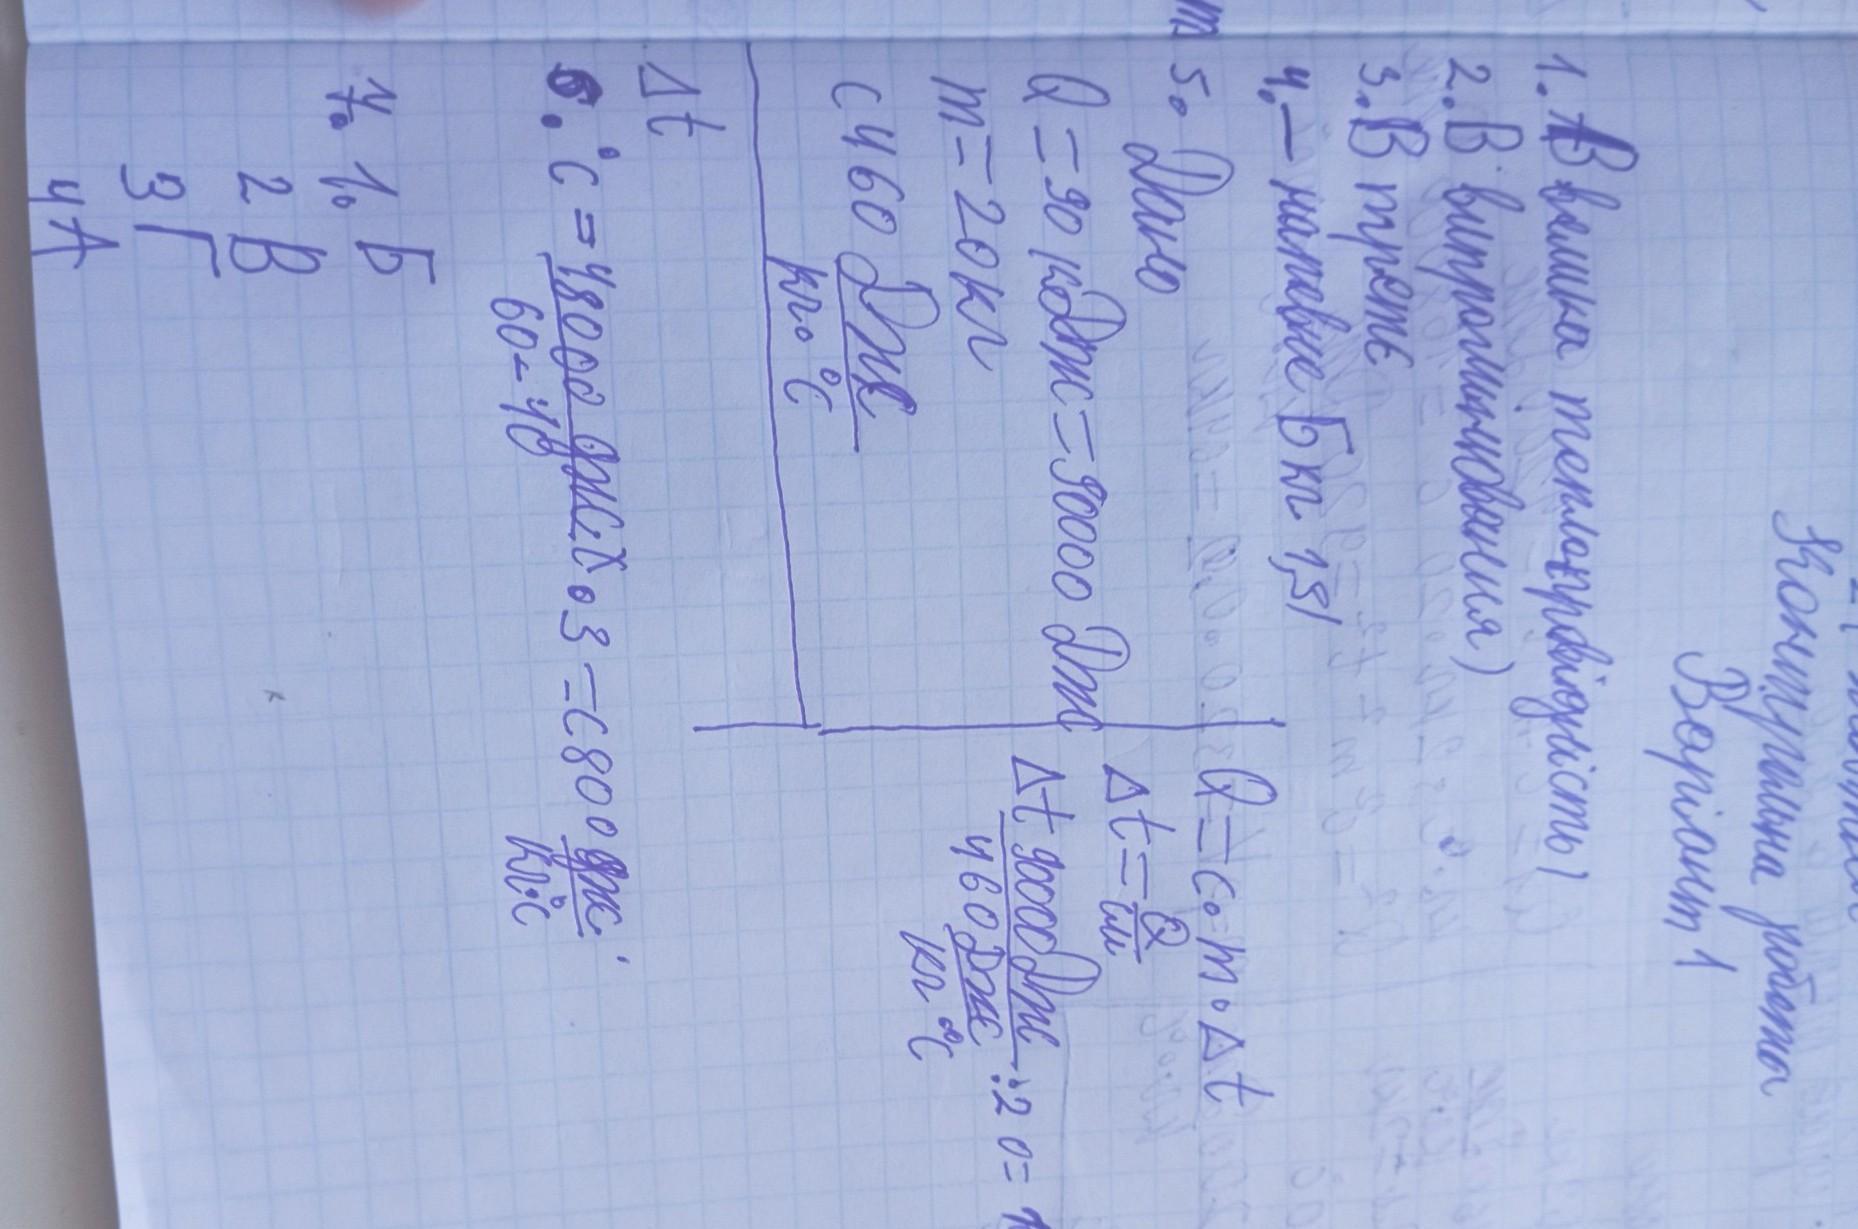 Контрольна робота
Варіант 1
1. В велика теплопровідність)
2. В випромінювання)
3. В третє
4. – напевне Б кг 1,5)
5. Дано
Q = 90 кДж = 90000 Дж
m = 20 кг
c 460 Дж
кг · °C
Δt
Q = c · m · Δt
Δt = Q
cm
Δt 90000 Дж : 20 =
460 Дж
кг °C
6. °C = 48000 дж · 3 = C 800 дж
60 – 40 кг °C
7. 1. Б
2 В
3 Г
4 А